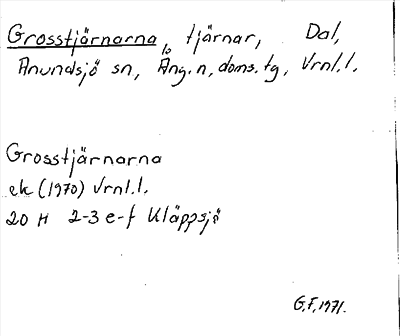 Grosstjärnarna, tjärnar, Dal,
Anundsjö sn, Ång. n, doms. tg, Vrnl.l.
Grosstjärnarna
ek (1970) Vrnl.l.
20 H 2-3 e-f Kläppsjö
G.F. 1971.